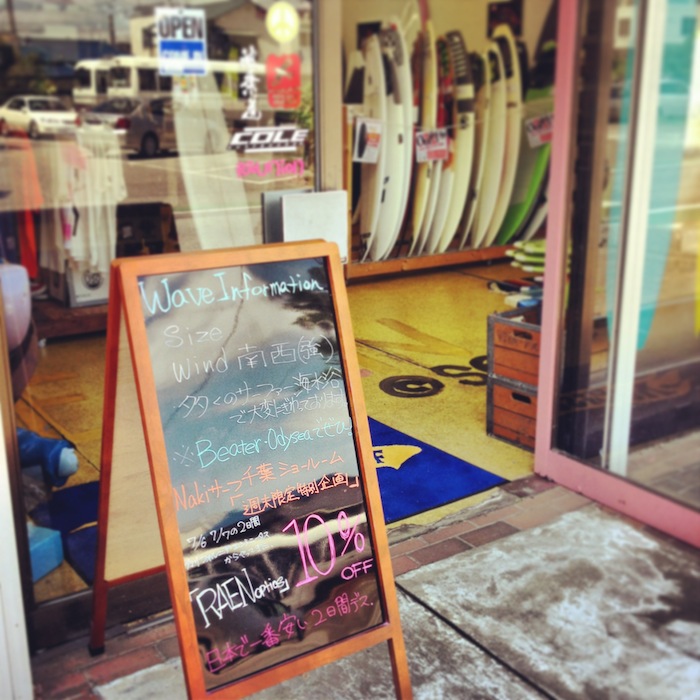 OPEN
COLE
Wave Information
Size
Wind 南西(強)
多くのサーファー海水浴
で大変にぎわっております
※Beater・Odyseaでぜひ!
Nakiサーフ千葉ショールーム
「週末限定特別企画!」
7/6 7/7の2日間
「RAEN optics」
10% OFF
日本で一番安い2日間デス。